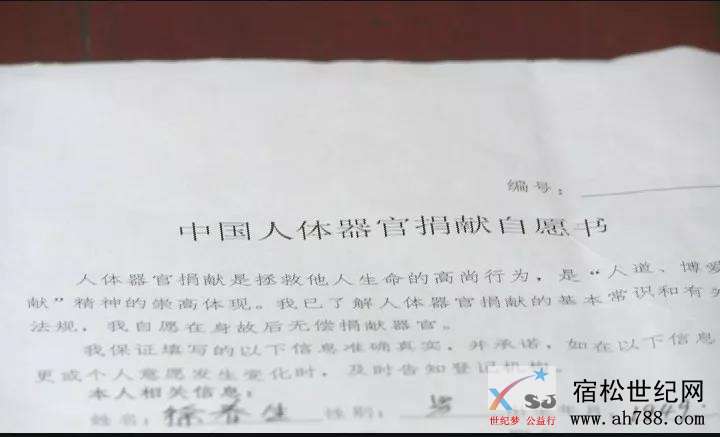 编号：
中国人体器官捐献自愿书
人体器官捐献是拯救他人生命的高尚行为，是“人道、博爱
献”精神的崇高体现。我已了解人体器官捐献的基本常识和有关
法规，我自愿在身故后无偿捐献器官。
我保证填写的以下信息准确真实，并承诺，如在以下信息
更或个人意愿发生变化时，及时告知登记机构。
本人相关信息：
姓名：徐春生 性别：男
SJ
世纪梦 公益行
宿松世纪网
www.ah788.com